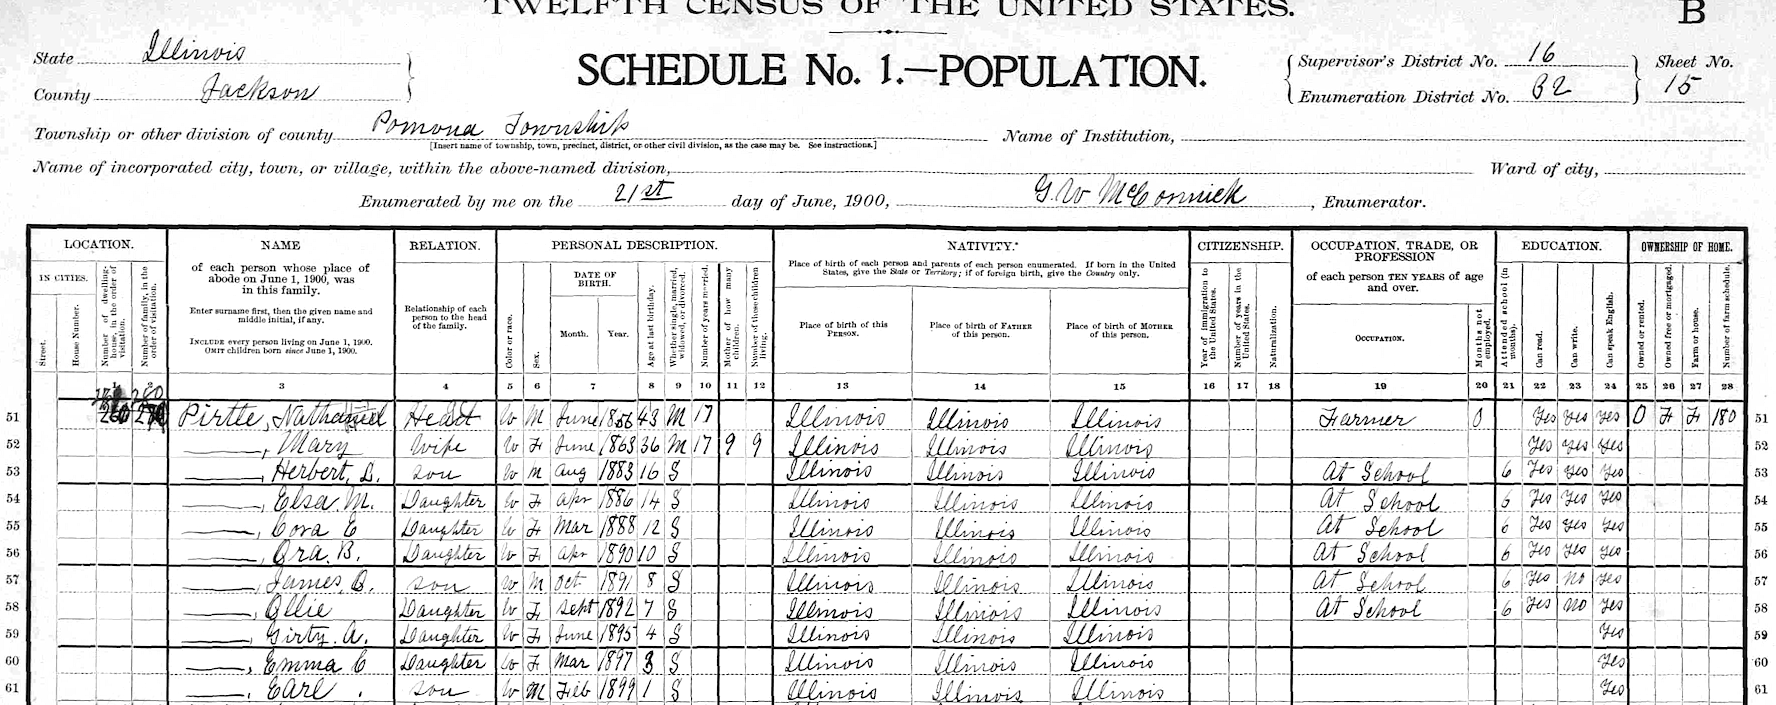 TWELFTH CENSUS OF THE UNITED STATES.
B
State Illinois
County Jackson
SCHEDULE No. 1.—POPULATION.
Supervisor's District No. 16
Enumeration District No. 82
Sheet No.
15
Township or other division of county Pomona Township
[Insert name of township, town, precinct, district, or other civil division, as the case may be. See instructions.]
Name of Institution,
Name of incorporated city, town, or village, within the above-named division,
Ward of city,
Enumerated by me on the 21st day of June, 1900, G. W McCormick, Enumerator.
LOCATION. NAME RELATION. PERSONAL DESCRIPTION. NATIVITY. CITIZENSHIP. OCCUPATION, TRADE, OR PROFESSION EDUCATION. OWNERSHIP OF HOME.
IN CITIES.
Street.
House Number.
Number of dwelling-house, in the order of visitation.
Number of family, in the order of visitation.
of each person whose place of abode on June 1, 1900, was in this family.
Enter surname first, then the given name and middle initial, if any.
INCLUDE every person living on June 1, 1900.
OMIT children born since June 1, 1900.
Relationship of each person to the head of the family.
Color or race.
Sex.
DATE OF BIRTH.
Month. Year.
Age at last birthday.
Whether single, married, widowed, or divorced.
Number of years married.
Mother of how many children.
Number of these children living.
Place of birth of each person and parents of each person enumerated. If born in the United States, give the State or Territory; if of foreign birth, give the Country only.
Place of birth of this PERSON.
Place of birth of FATHER of this person.
Place of birth of MOTHER of this person.
Year of immigration to the United States.
Number of years in the United States.
Naturalization.
of each person TEN YEARS of age and over.
OCCUPATION.
Months not employed.
Attended school (in months).
Can read.
Can write.
Can speak English.
Owned or rented.
Owned free or mortgaged.
Farm or house.
Number of farm schedule.
1 2 3 4 5 6 7 8 9 10 11 12 13 14 15 16 17 18 19 20 21 22 23 24 25 26 27 28
51 Pirtle, Nathaniel Head W M June 1856 43 M 17 Illinois Illinois Illinois Farmer 0 Yes Yes Yes O F F 180 51
52 ——, Mary Wife W F June 1863 36 M 17 9 9 Illinois Illinois Illinois Yes Yes Yes 52
53 ——, Herbert, L. son W M Aug 1883 16 S Illinois Illinois Illinois At School 6 Yes Yes Yes 53
54 ——, Elsa M. Daughter W F Apr 1886 14 S Illinois Illinois Illinois At School 6 Yes Yes Yes 54
55 ——, Cora E Daughter W F Mar 1888 12 S Illinois Illinois Illinois At School 6 Yes Yes Yes 55
56 ——, Ora. B. Daughter W F Apr 1890 10 S Illinois Illinois Illinois At School 6 Yes Yes Yes 56
57 ——, James, B. son W M Oct 1891 8 S Illinois Illinois Illinois At School 6 Yes No Yes 57
58 ——, Ollie Daughter W F Sept 1892 7 S Illinois Illinois Illinois At School 6 Yes No Yes 58
59 ——, Girty. A. Daughter W F June 1895 4 S Illinois Illinois Illinois Yes 59
60 ——, Emma E Daughter W F Mar 1897 3 S Illinois Illinois Illinois Yes 60
61 ——, Earl . son W M Feb 1899 1 S Illinois Illinois Illinois Yes 61